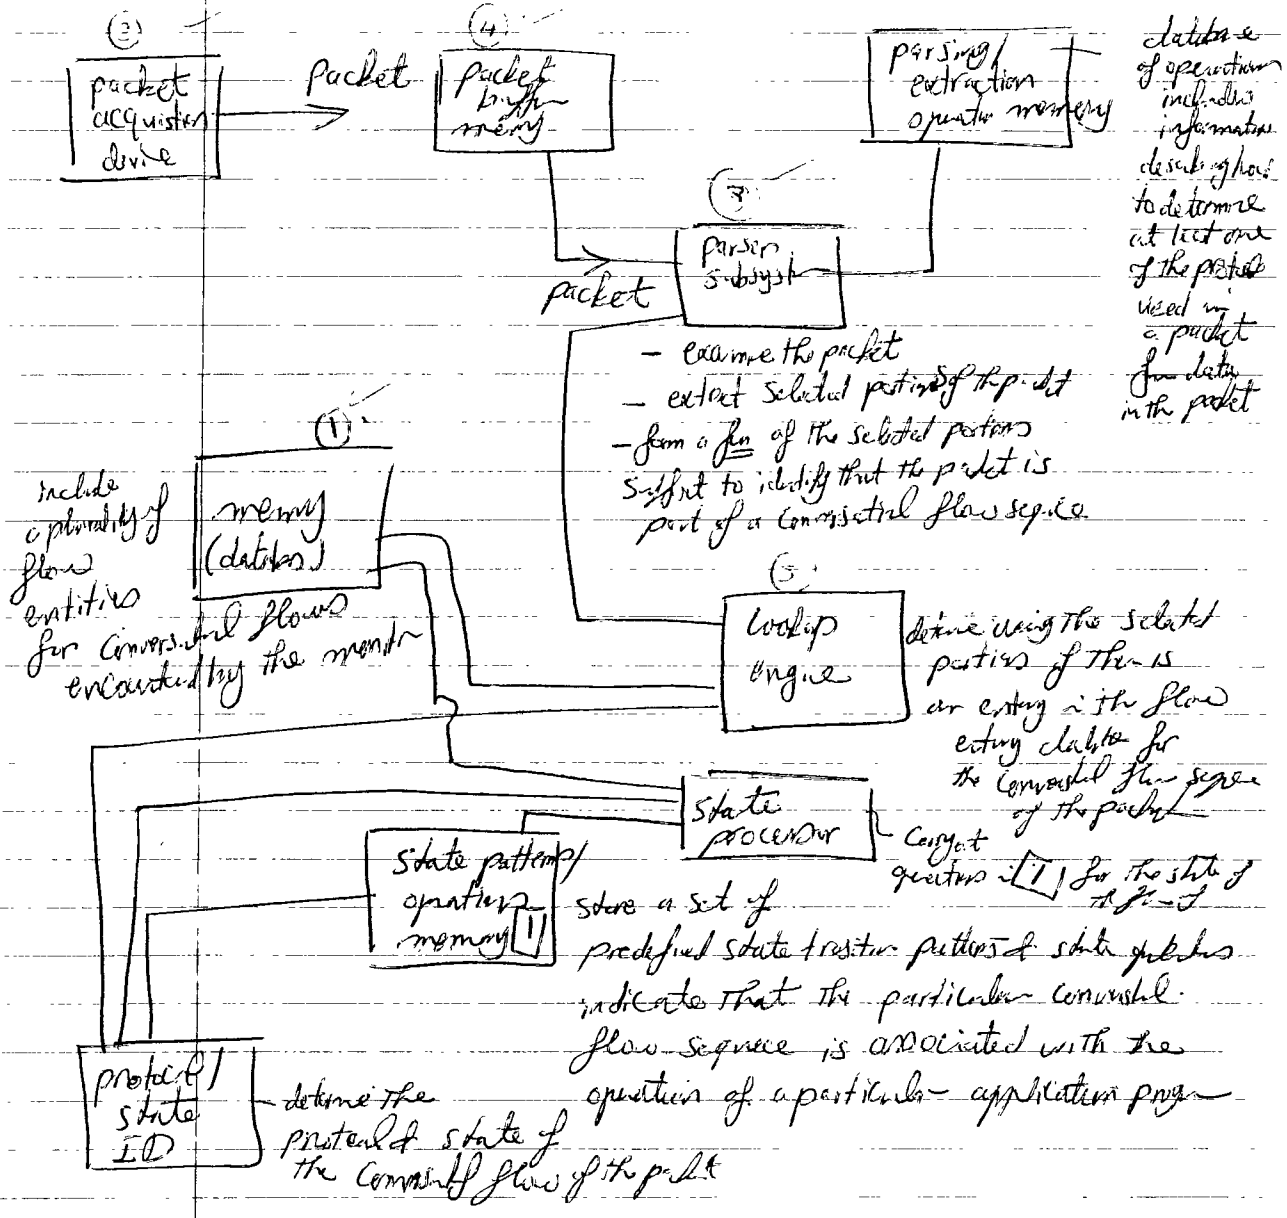 packet
acquistion
device
packet
④
packet
buffer
memory
parsing/
extraction
operator memory
database
of operations
includes
information
describing how
to determine
at least one
of the protocols
used in
a packet
from data
in the packet
packet
parser
subsyst
– examine the packet
– extract selected portions of the packet
– form a fcn of the selected portions
to identify that the packet is
part of a conversatnl flow seqnce
①
memory
(databas)
include
a plurality of
flow
entities
for conversatnl flows
encountered by the monitor
lookup
engine
determine using the selected
portions if there is
an entry in the flow
entry databse for
the conversatnl flow seqnce
of the packet
state
processor
carry out
operations in 1 for the state of
state patterns/
operations
memory 1
store a set of
predefined state transition patterns & state
indicate that the particular conversatnl
flow seqnece is associated with the
operation of a particular application progm
protocol/
state
ID
determine the
protocol & state of
the conversatnl flow of the packet